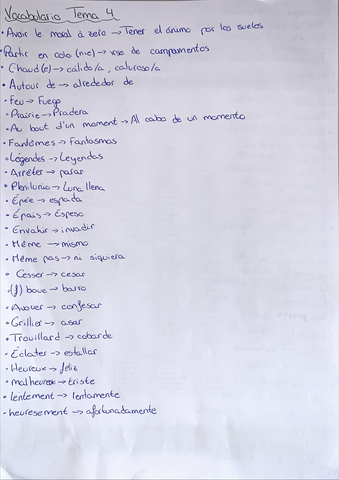 Vocabulario Tema 4
• Avoir le moral à zero → Tener el ánimo por los suelos
• Partir en colo (nie) → irse de campamentos
• Chaud(e) → cálido/a, caluroso/a
• Autour de → alrededor de
• Feu → Fuego
• Prairie → Pradera
• Au bout d'un moment → Al cabo de un momento
• Fantômes → Fantasmas
• Légendes → Leyendas
• Arrêter → parar
• Plenilunio → Luna llena
• Épée → espada
• Épais → Espeso
• Envahir → invadir
• Même → mismo
• Même pas → ni siquiera
• Cesser → cesar
• (f) boue → barro
• Avouer → confesar
• Grillier → asar
• Trouillard → cobarde
• Éclater → estallar
• Heureux → feliz
• malheureux → triste
• lentement → lentamente
• heuresement → afortunadamente